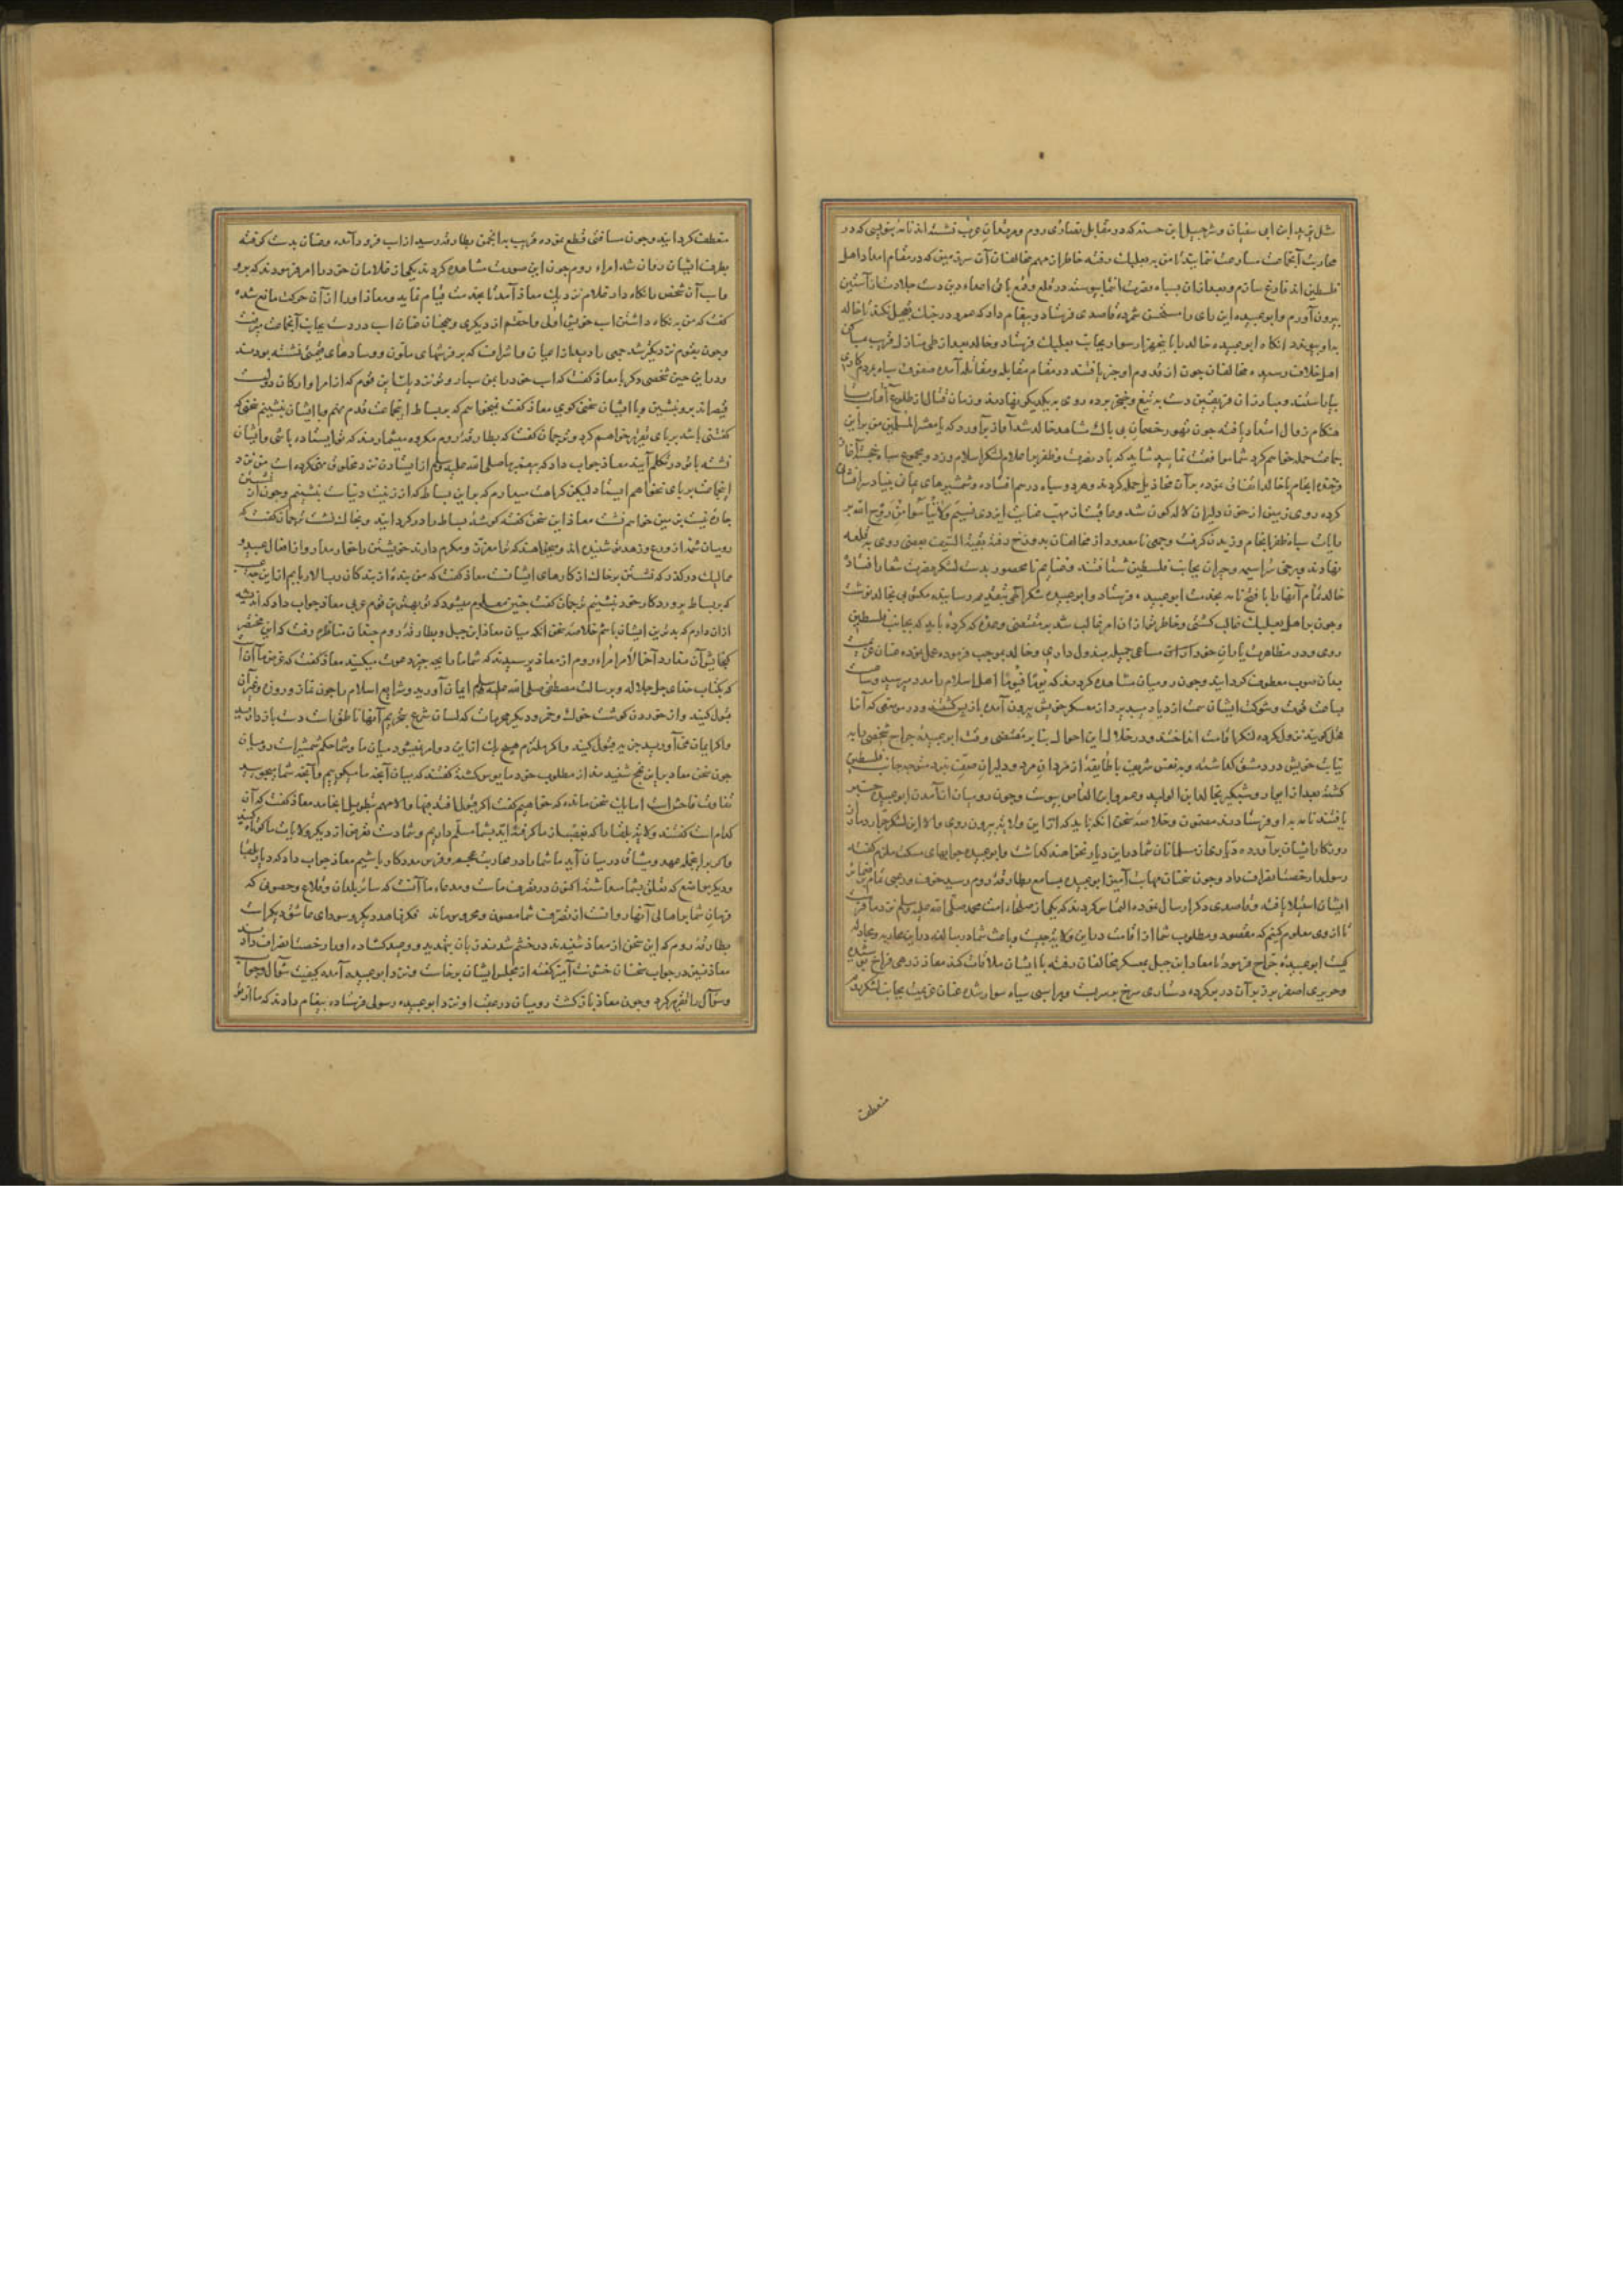 مثل یزید ابن ابی سفیان و شرحبیل ابن حسنه که در مقابل نصاری روم و عرب نشسته اند نامه
محاربت آنجماعت مسارعت نمایند تا من به بعلبک رفته خاطر از مهم مخالفان آن سرزمین که در مقام امداد اهل
فلسطین اند فارغ سازم و بعد از ان بسپاه نصرت انتما پیوسته در قلع و قمع باقی اعداء دین دست جلادت از آستین
بیرون آورم و ابو عبیده این رای را مستحسن شمرده قاصدی فرستاد و پیغام داد که عمرو در جنک تعجیل نکند تا خالد
بدو پیوندد انکاه ابو عبیده خالد را با پنجهزار سوار بجانب بعلبک فرستاد و خالد بعد از طی منازل قریب
اهل خلاف رسیده مخالفان چون از قدوم او خبر یافتند در مقام مقابله و مقاتله آمده صفوف سپاه
بیاراستند و مبارزان فریقین دست به تیغ و خنجر برده روی به یکدیگر نهادند و زمان قتال از طلوع آفتاب تا
هنکام زوال امتداد یافته چون تهور خصمان بی باک مشاهد خالد شد آواز برآورد که یا معشر المسلمین من براین
جماعت حمله خواهم کرد شما موافقت نمایید شاید که باد نصرت و ظفر بر اعلام لشکر اسلام وزد و مجموع سپاه خجسته آغاز
فرخنده انجام با خالد اتفاق نموده بر آن مخاذیل حمله کردند و هر دو سپاه درهم افتاده و شمشیرهای
کرده روی زمین از خون دلیران لاله کون شد و ما نشان مهب عنایت ایزدی نسیم ولا تیأسوا من روح الله بر
رایات سپاه ظفر انجام وزیدن کرفت و جمعی نامعدود از مخالفان بدوزخ رفته بقیة السیف بعضی روی به قلعه
نهادند و برخی سراسیمه و حیران بجانب فلسطین شتافتند و غنایم نامحصور بدست لشکر نصرت شعار افتاد
خالد تمام آنها را با فتح نامه بخدمت ابو عبیده فرستاد و ابو عبیده شکر الهی بتقدیم رسانیده مکتوبی بخالد نوشت
وچون بر اهل بعلبک غالب کشتی و خاطر تو از ان امر فارغ شد بر مقتضی وعده که کرده باید که بجانب فلسطین
روی و در مظاهرت یاران خود آنجا مساعی جمیله مبذول داری و خالد بموجب فرموده عمل نموده عنان عزیمت
بدان صوب معطوف کردانید و چون رومیان مشاهده کردند که یوما فیوما اهل اسلام را مدد میرسد و ساعت
بساعت قوت و شوکت ایشان سمت ازدیاد میپذیرد از معسکر خویش بیرون آمده باز پس کشتند و در موضعی که آنرا
فحل کویند نزول کرده لنکر اقامت انداختند و در خلال این احوال بنا بر مقتضی وقت ابو عبیده جراح شخصی را به
نیابت خویش در دمشق کذاشته و به نفس شریف با طایفه از مردان مرد و دلیران صف نبرد متوجه جانب فلسطین
کشته بعد از ایوار و شبکیر بخالد ابن الولید و عمرو ابن العاص پیوست و چون رومیان از آمدن ابو عبیده خبر
یافتند نامه بدو فرستادند مضمون و خلاصه سخن آنکه باید که از این ولایت بیرون روی والا این لشکر جرار دمار از
روزکار ایشان برآورده دیاری از مسلمانان شما در این دیار نخواهند کذاشت و ابو عبیده جوابهای مسکت ملزم کفته
رسول را رخصت انصراف داد و چون سخنان مهابت آمیز ابو عبیده بمسامع بطارقه روم رسید خوف و رعبی تمام بر
ایشان استیلا یافته و قاصدی دیکر ارسال نموده التماس کردند که یکی از صلحاء امت محمد صلی الله علیه وسلم نزد ما فرست
تا از وی معلوم کنیم که مقصود و مطلوب شما از اقامت در این ولایت چیست و باعث شما در مبالغه در این محاربه و مجادله
کیست ابو عبیده جراح فرمود تا معاذ ابن جبل بمعسکر مخالفان رفته با ایشان ملاقات کند معاذ زرهی فراخ پوشیده
و حریری اصفر بر زبر آن در بر کرده دستاری سرخ بر سر بست و بر اسبی سیاه سوار شده عنان عزیمت بجانب لشکر روم
منعطف
منعطف کردانید و چون مسافتی قطع نموده قریب به انجمن بطارقه رسید از اسب فرود آمده و عنان بدست کرفته
بطرف ایشان روان شد امراء روم چون این صورت مشاهده کردند یکی از غلامان خود را امر فرمودند که برو
واسب آن شخص را نکاه دار غلام نزدیک معاذ آمد تا بخدمت قیام نماید و معاذ او را از آن حرکت مانع شده
کفت که من به نکاه داشتن اسب خویش اولی و احقم از دیکری و همچنان عنان اسب در دست بجانب آنجماعت میرفت
وچون بقوم نزدیکتر شد جمعی را دید از اعیان و اشراف که بر فرشهای ملون و وسادهای قیمتی نشسته بودند
و در این حین شخصی دیکر با معاذ کفت که اسب خود را بمن سپار و تو نزد رؤسا این قوم که از امرا و ارکان دولت
قیصراند برو بنشین و با ایشان سخن کوی معاذ کفت نمیخواهم که بر بساط این جماعت قدم نهم و با ایشان بنشینم سخنی که
کفتنی باشد بر پای تقریر خواهم کرد و ترجمان کفت که بطارقه روم مکروه میشمارند که تو ایستاده باشی و ایشان
نشسته با تو در تکلم آیند معاذ جواب داد که پیغمبر ما صلی الله علیه وسلم از ایستادن نزد مخلوق نهی کرده است و من نزد
اینجماعت بر پای نخواهم ایستاد لیکن کراهت میدارم که بر این بساط که از زینت دنیاست بنشینم و چون از نشستن
چاره نیست بر زمین خواهم نشست معاذ این سخن کفته کوشه بساط را در کردانید و بخاک نشست ترجمان کفت که
رومیان شمه از ورع و زهد تو شنیده اند و میخواهند که ترا معزز و مکرم دارند خویشتن را خوار مدار و از افعال عبید و
ممالیک در کذر که نشستن بر خاک از کارهای ایشانست معاذ کفت که من بنده از بندکان رب الاربابم از این جهت
که بر بساط پروردکار خود بنشینم ترجمان کفت چنین معلوم میشود که تو بهترین قوم عربی معاذ جواب داد که اندیشه
از ان دارم که بدترین ایشان باشم خلاصه سخن آنکه میان معاذ ابن جبل و بطارقه روم چندان مناظره رفت که این مختصر
کنجایش آن ندارد آخر الامر امراء روم از معاذ پرسیدند که شما ما را بچه چیز دعوت میکنید معاذ کفت که غرض ما آن است
که بکتاب خدای جل جلاله و برسالت مصطفی صلی الله علیه وسلم ایمان آورید و شرایع اسلام را چون نماز و روزه و غیر آن
قبول کنید و از خوردن کوشت خوک و خمر و دیکر محرمات که لسان شرع بتحریم آنها ناطق است دست باز دارید
واکر ایمان نمی آورید جزیه قبول کنید واکر ملتزم هیچ یک از این دو امر نمیشوید میان ما و شما حکم شمشیر است رومیان
چون سخن معاذ بر این نهج شنیدند از مطلوب خود مأیوس کشته کفتند که میان آنچه ما میکوییم و آنچه شما میجویید
تفاوت فاحش است اما یک سخن مانده که خواهیم کفت اکر قبول افتد فبها والا مهم بتطویل انجامد معاذ کفت که آن
کدام است کفتند ولایت بلقا را که بغصب از ما کرفته اید بشما مسلم داریم و شما دست تعرض از دیکر ولایات ما کوتاه کنید
واکر بر این جمله عهد و میثاق در میان آید ما شما را در محاربت عجم و فرس مددکار باشیم معاذ جواب داد که دیار بلقا
و دیکر مواضع که تعلق بشما میداشته اکنون در تصرف ماست و مدعاء ما آنست که سائر بلدان و قلاع و حصون که
فرمان شما بر اهالی آنها روانست از تصرف شما مصون و محروس ماند فکر زاهد دیکر و سودای عاشق دیکر است
بطارقه روم که این سخن از معاذ شنیدند در خشم شدند زبان بتهدید و وعید کشاده او را رخصت انصراف دادند
معاذ نیز در جواب سخنان خشونت آمیز کفته از مجلس ایشان برخاست و نزد ابو عبیده آمده کیفیت سؤال و جواب
و سؤال را تقریر کرد و چون معاذ باز کشت رومیان در عقب او نزد ابو عبیده رسولی فرستاده پیغام دادند که ما از تو